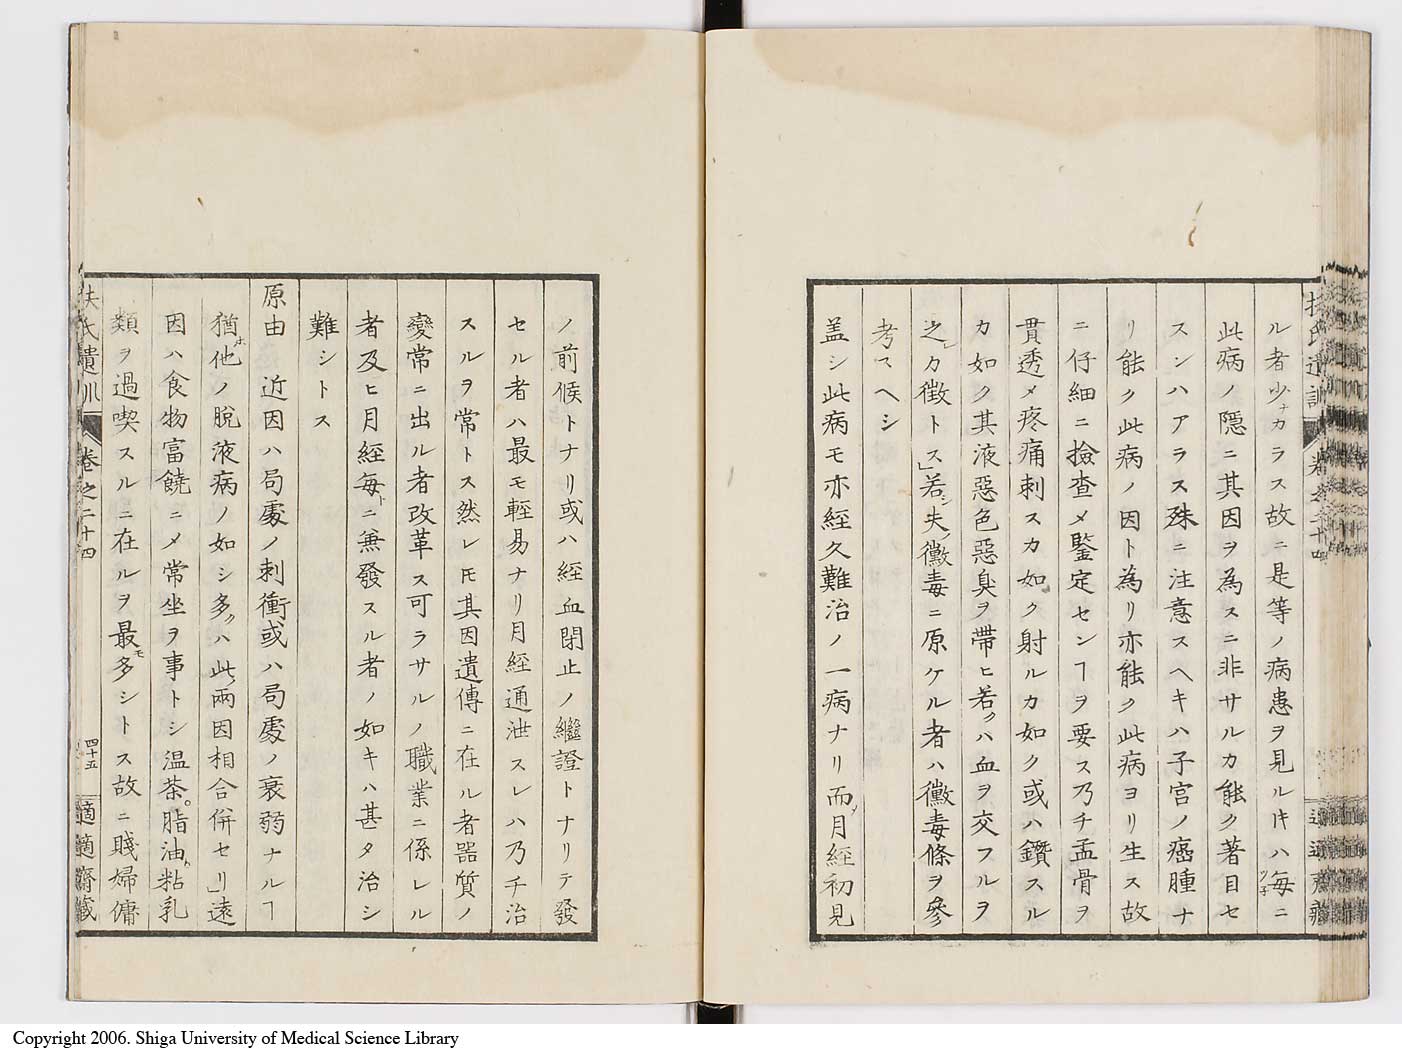 ル者少ナカラス故ニ是等ノ病患ヲ見ル𪜈ハ毎ニ
此病ノ隠ニ其因ヲ為スニ非サルカ能ク著目セ
スンハアラス殊ニ注意スヘキハ子宮ノ癌腫ナ
リ能ク此病ノ因ト為リ亦能ク此病ヨリ生ス故
ニ仔細ニ撿査メ鑒定センヿヲ要ス乃チ盂骨ヲ
貫透メ疼痛刺スカ如ク射ルカ如ク或ハ鑽スル
カ如ク其液惡色惡臭ヲ帶ヒ若クハ血ヲ交フルヲ
之レカ徴トス」若シ夫ノ黴毒ニ原ケル者ハ黴毒條ヲ參
考スヘシ
盖シ此病モ亦経久難治ノ一病ナリ而メ月経初見
ノ前候トナリ或ハ経血閉止ノ繼證トナリテ發
セル者ハ最モ輕易ナリ月経通泄スレハ乃チ治
スルヲ常トス然レ𪜈其因遺傳ニ在ル者器質ノ
變常ニ出ル者改革ス可ラサルノ職業ニ係レル
者及ヒ月経毎トニ兼發スル者ノ如キハ甚タ治シ
難シトス
原由 近因ハ局處ノ刺衝或ハ局處ノ衰弱ナルヿ
猶ホ他ノ脫液病ノ如シ多クハ此兩因相合併セリ」遠
因ハ食物富饒ニメ常坐ヲ事トシ温茶。脂油、粘乳
類ヲ過喫スルニ在ルヲ最モ多シトス故ニ賤婦傭
扶氏遺訓 卷之二十四 四十五 適適齋藏
Copyright 2006. Shiga University of Medical Science Library